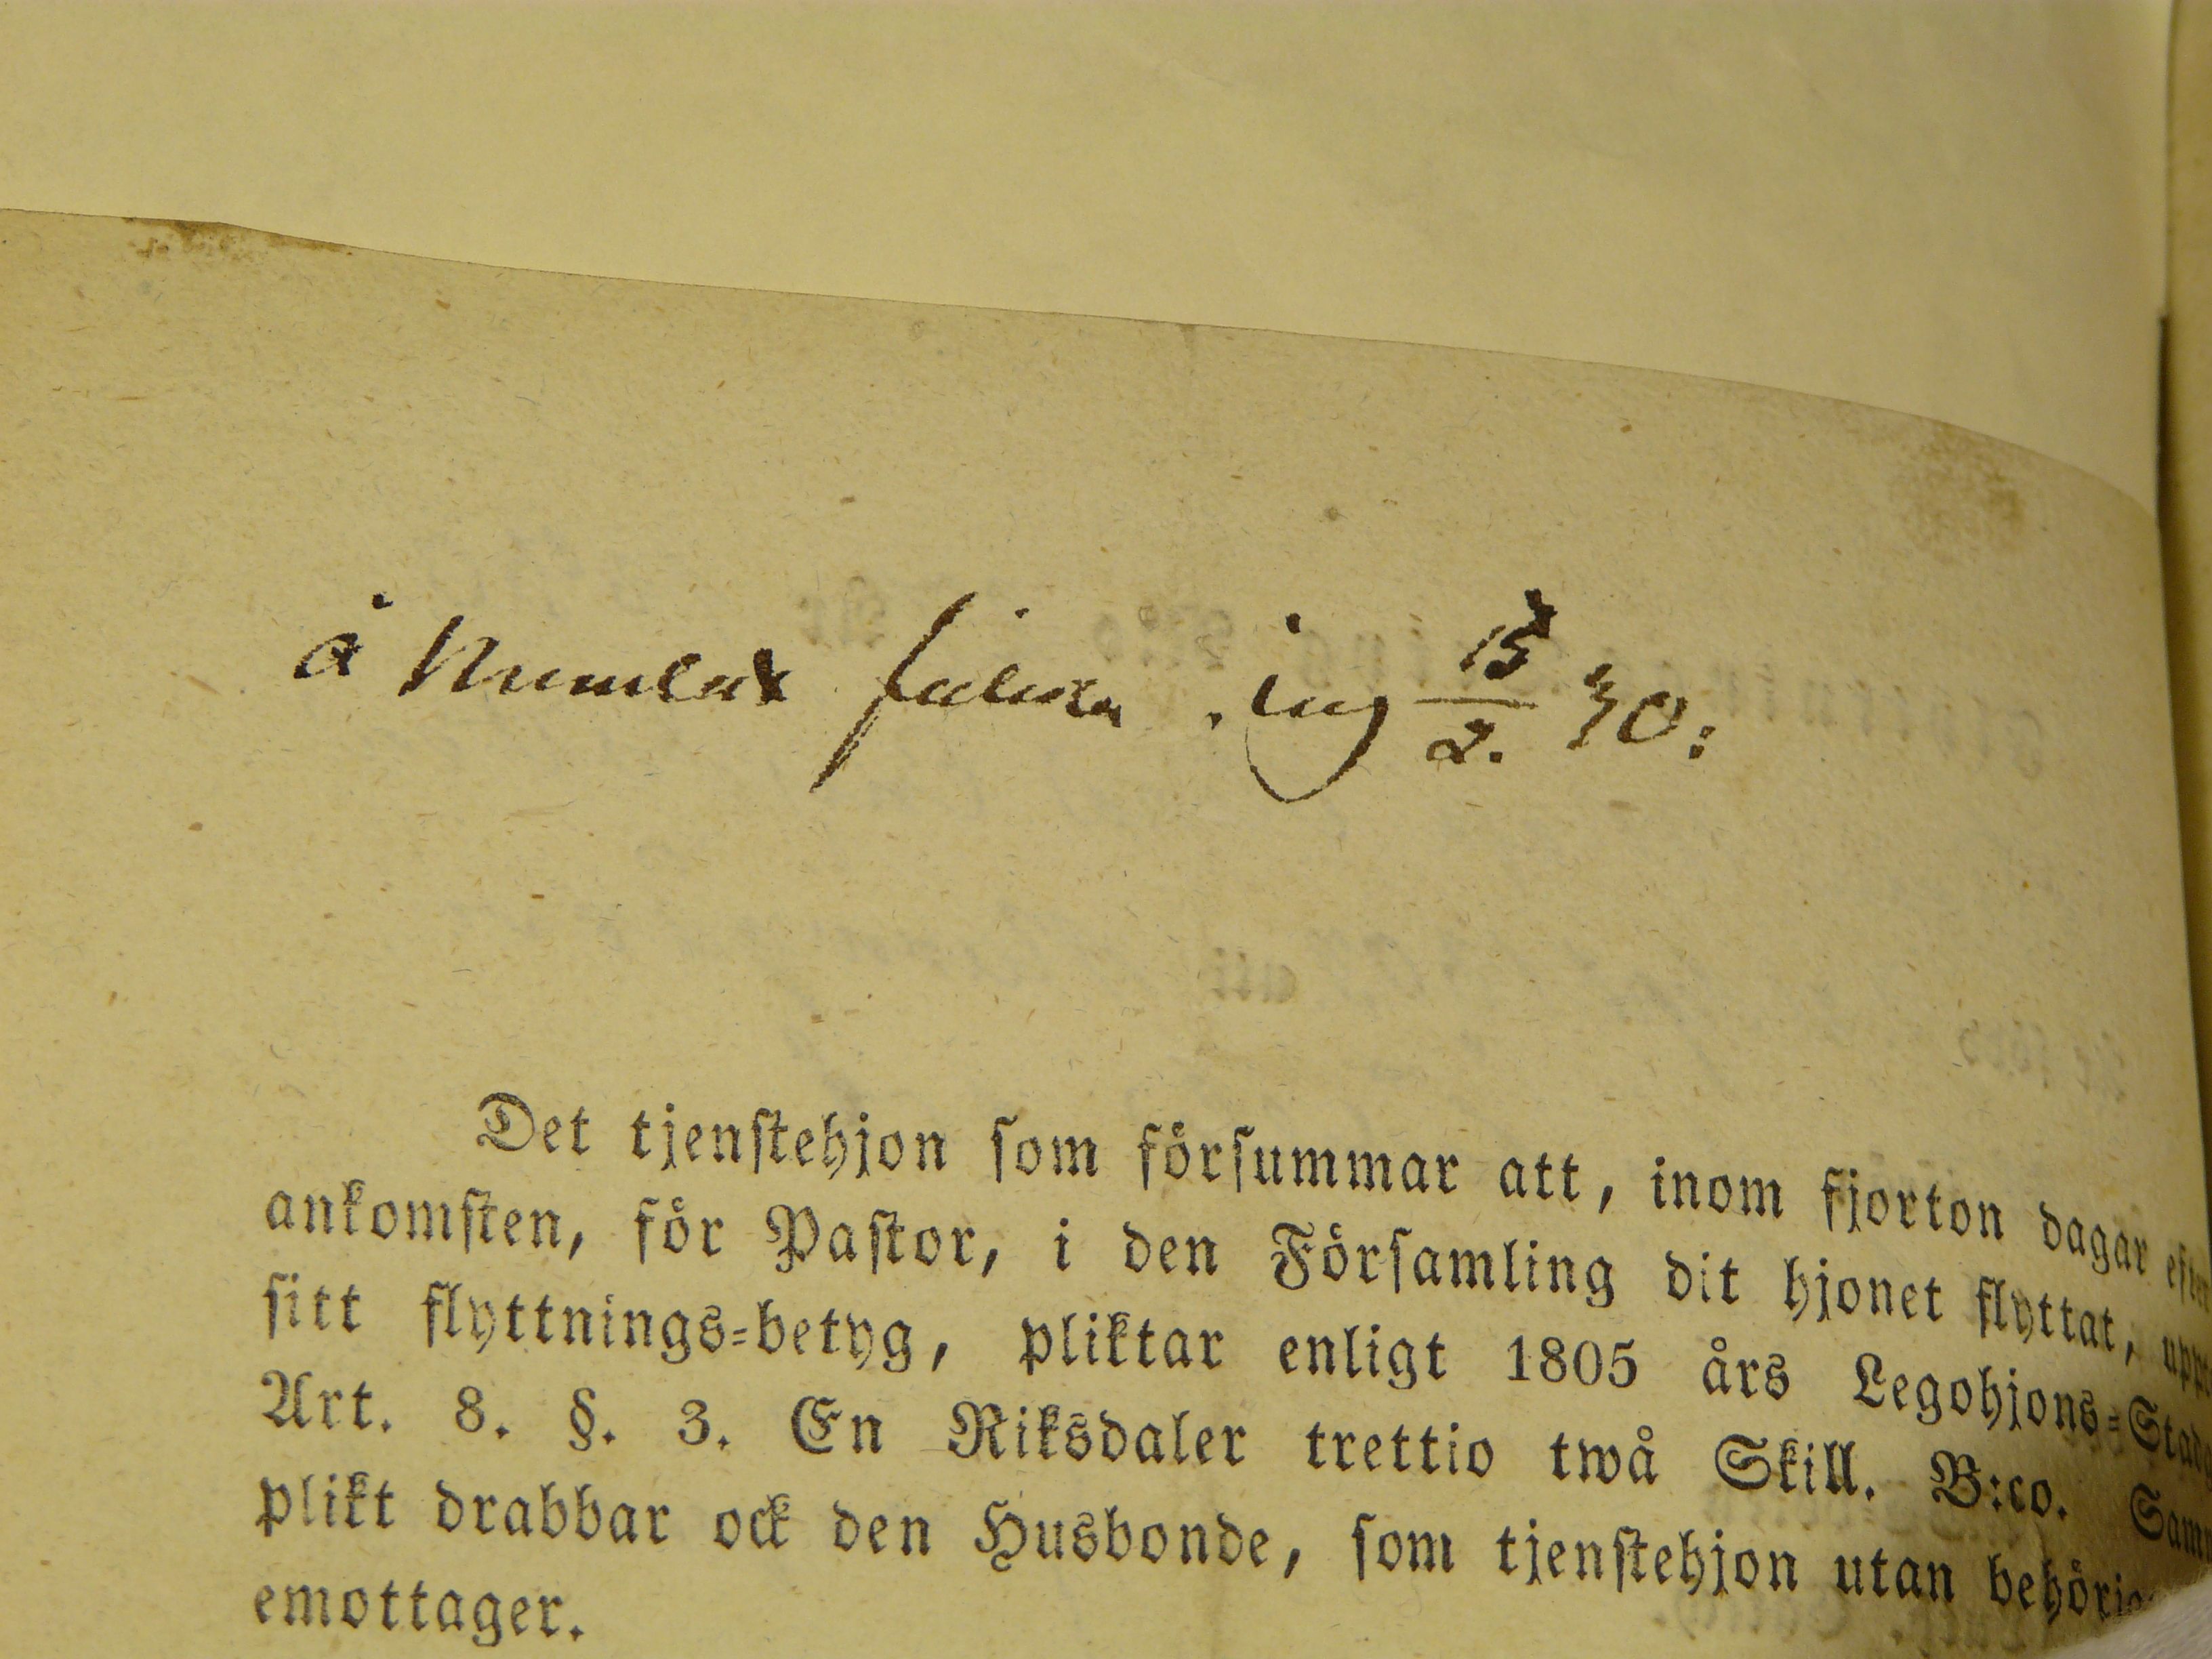 å Numlax ing 15/2. 40:
Det tjenstehjon som försummar att, inom fjorton dagar efter
ankomsten, för Pastor, i den Församling dit hjonet flyttat,
sitt flyttnings-betyg, pliktar enligt 1805 års Legohjons-
Art. 8. §. 3. En Riksdaler trettio twå Skill. B:co.
plikt drabbar ock den Husbonde, som tjenstehjon utan
emottager.